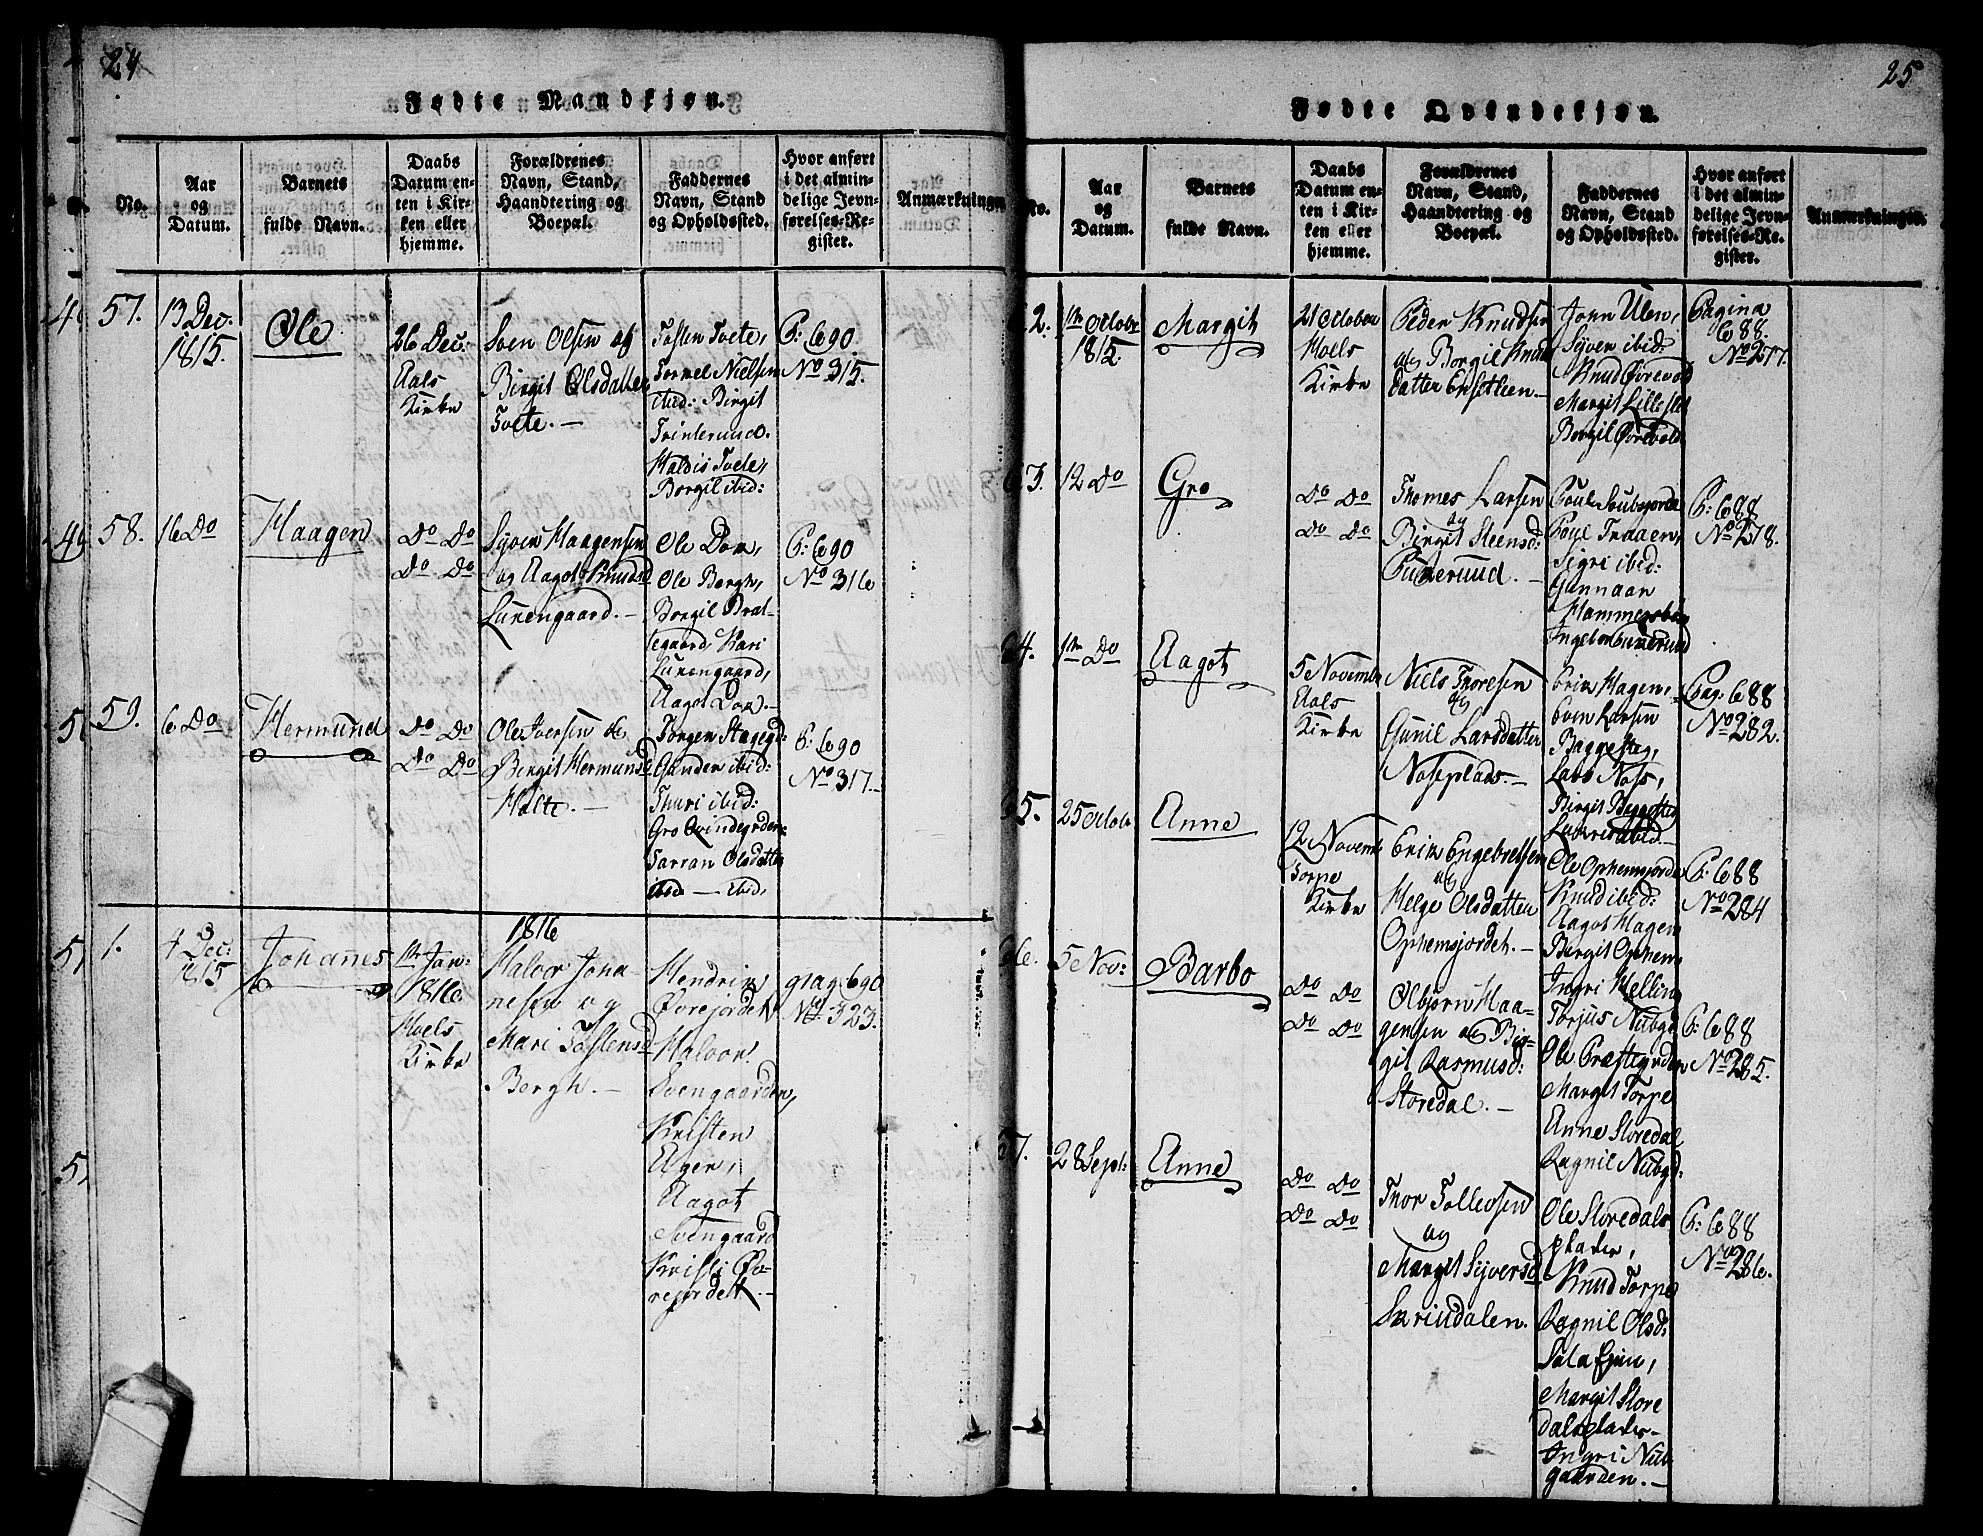 24
Fødte Mandkjøn.
No.
Aar og Datum.
Barnets fulde Navn.
Daabs Datum enten i Kirken eller hjemme.
Forældrenes Navn, Stand, Haandtering og Boepæl.
Faddernes Navn, Stand og Opholdssted.
Hvor anført i det almindelige Jevnførelses-Register.
Anmærkninger
57.
13 Dec:
1815.
Ole
26 Dec:
Aals
Kirke
Sven Olsen og
Birgit Olsdatter
Tvete. —
Tosten Tvete,
Tormel Nielsen
ibid: Birgit
Trinterund.
Haldis Tvete,
Borgil ibid:
P: 690
No 315.
58.
16 Do
Haagen
Do Do
Do Do
Syver Haagensen
og Aagot Knudsd
Lurengaard. —
Ole Dom,
Ole Bergh,
Borgil Brat-
egaard, Kari
Lurengaard,
Aagot Dom. —
P: 690
No 316
59.
6 Do
Hermund
Do Do
Do Do
Ole Iversen og
Birgit Hermunsd
Holte. —
Jorgen
Gunder ibid:
Thuri ibid:
Gro
Olsdatter
ibid — ibid,
P: 690
No 317.
1816
1.
4 Dec:
1815
Johannes
1te Jan:
1816
Hoels
Kirke
Halvor Joha-
nesen og
Mari Tostensd
Bergh. —
Hendrik
Øvrejordet
Halvor
Svengaarden,
Kristen
Ager,
Aagot
Svengaard
Kristi Øv-
rejordet. —
pag 690
No 323.
25
Fødte Qvindekjøn.
No.
Aar og Datum.
Barnets fulde Navn.
Daabs Datum enten i Kirken eller hjemme.
Forældrenes Navn, Stand, Haandtering og Boepæl.
Faddernes Navn, Stand og Opholdssted.
Hvor anført i det almindelige Jevnførelses-Register.
Anmærkninger.
62.
1te Octobr
1815.
Margit
21 October
Hoels
Kirke
Peder Knudsen
og Borgil Knud
datter Ensetleen —
John Ulen,
Syver ibid:
Knud Ørevold
Margit Lilleslet
Borgil Ørevold
Pagina
688
No 277.
63.
12 Do
Gro
Do Do
Do Do
Thomes Larsen
og
Birgit Steensd:
Pukerud. —
Poul
Poul Traaen,
Sigri ibid:
Gunnaar
P: 688
No 278.
64.
1te Do
Aagot
5 Novembr
Aals
Kirke
Niels Thoresen
og
Gunil Larsdatter
Noseplads. —
Erik Hagen,
Even Larsen
Baggesteg,
Lars Noss,
Birgit Baggesteg
ibid —
Pag. 688
No 282.
65.
25 Octobr
Anne
12 Novembr
Torpe
Kirke
Erik Engebretsen
og
Helge Olsdatter
Ophemsjordet. —
Ole Ophemsjordet
Knud ibid:
Aagot Hagen
Bergit Ophem
Ingri Helling
P: 688
No 284
66.
5 Nov:
Barbo
Do Do
Do Do
Olbjorn Haa-
gensen og Bir-
git Rasmusd:
Storedal. —
Torjus Nubgd
Ole Præstegrden
Margit Torpe
Anne Storedal
Ragnil Nubgd.
P: 688
No 285.
67.
28 Sept:
Anne
Do Do
Do Do
Thor Tollevsen
og
Margit Syversd
Skrindalen.
Ole Storedals
pladen,
Knud Torpe
Ragnil Olsd:
Margit Store
dalspladen —
Ingri Nub
gaarden. —
P: 688
No 286.